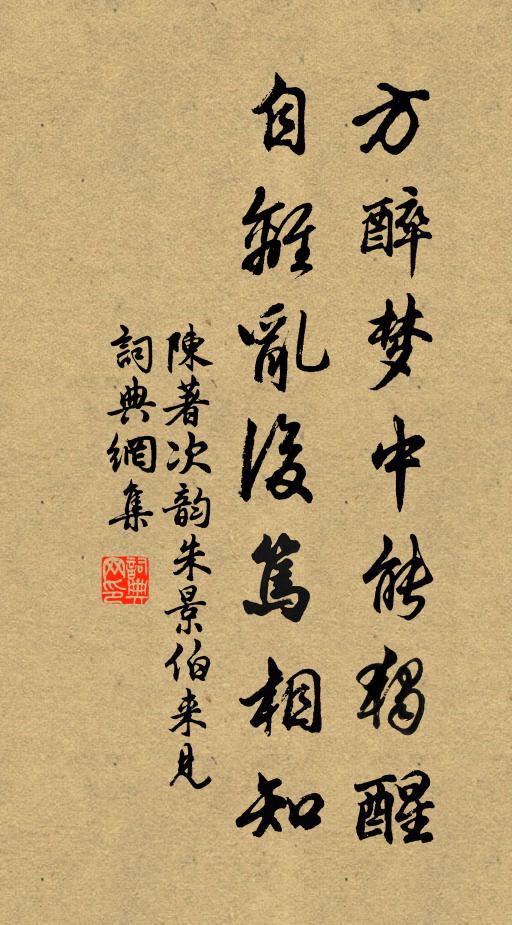 方醉梦中能独醒
自離亂後篤相知
陳著次韵朱景伯来見
詞典網集
詞典網印